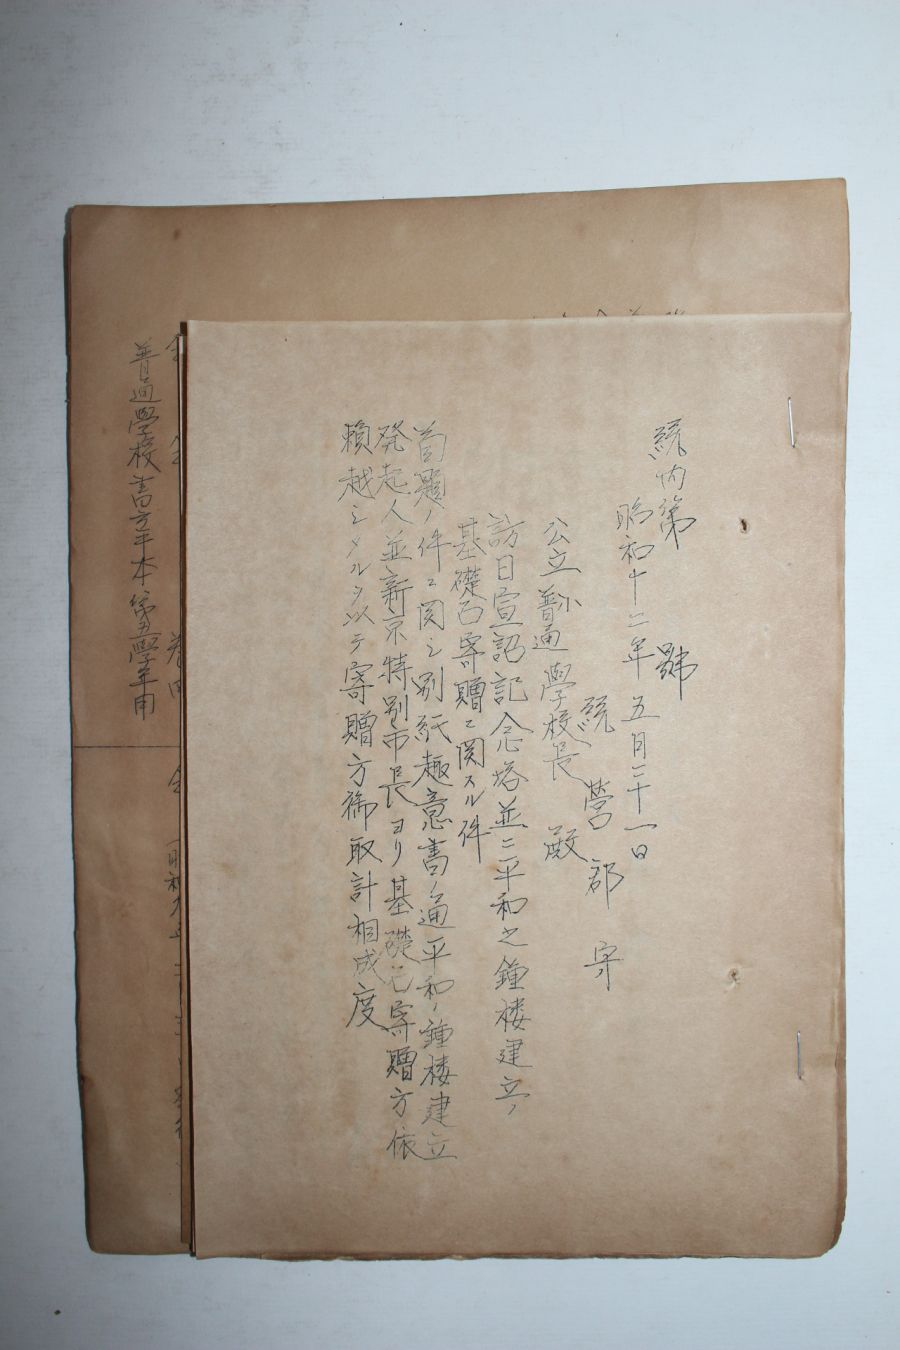 統内第　　號
昭和十二年五月二十一日
統營郡守
公立普通學校長殿
小
訪日宣詔記念塔並ニ平和之鐘楼建立ノ
基礎石寄贈ニ関スル件
首題ノ件ニ関シ別紙趣意書ノ通平和ノ鐘楼建立
発起人並新京特別市長ヨリ基礎石寄贈方依
頼越シメルヲ以テ寄贈方御取計相成度
普通學校書方手本第五學年用
昭和九年